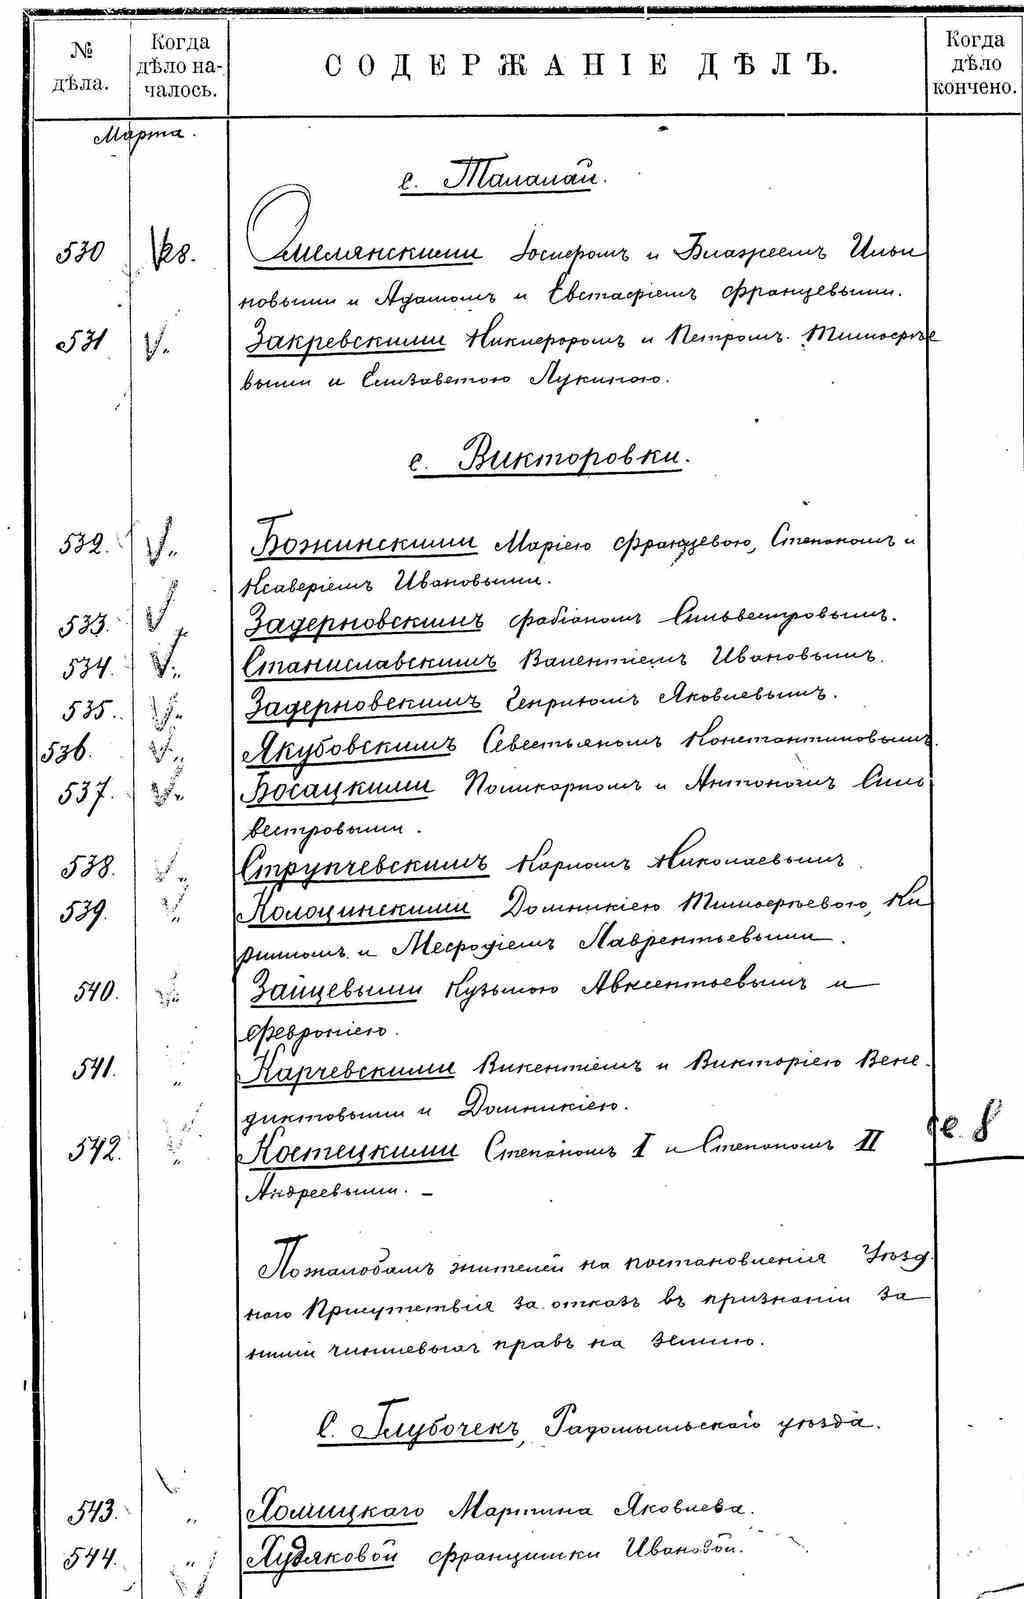 № дѣла. Когда дѣло началось. СОДЕРЖАНІЕ ДѢЛЪ. Когда дѣло кончено.
Марта.
с. Талалай.
530 28. Омелянскими Іосифомъ и Блажеемъ Ильи
новыми и Адамомъ и Евстафіемъ Францевыми.
531 „ Закревскими Никифоромъ и Петромъ Тимофѣе
выми и Елизаветою Лукиною.
с. Викторовки.
532. „ Божинскими Маріею Францевою, Степаномъ и
Ксаверіемъ Ивановыми.
533. „ Задерновскимъ Фабіаномъ Сильвестровымъ.
534. „ Станиславскимъ Валентіемъ Ивановымъ.
535. „ Задерновскимъ Генрихомъ Яковлевымъ.
536. „ Якубовскимъ Севестьяномъ Константиновымъ.
537. „ Босацкими Поликарпомъ и Антономъ Силь
вестровыми.
538. „ Струпчевскимъ Карломъ Николаевымъ
539. „ Колоцинскими Домникіею Тимофѣевою, Ки
рилломъ и Мефодіемъ Лаврентьевыми.
540. „ Зайцевыми Кузьмою Авксентьевымъ и
Февроніею.
541. „ Карчевскими Викентіемъ и Викторіею Вене-
диктовыми и Домникіею.
542. „ Костецкими Степаномъ I и Степаномъ II
Андреевыми. –
св. 8
По жалобамъ жителей на постановленія Уѣзд-
наго Присутствія за отказъ въ признаніи за
ними чиншевыхъ правъ на землю.
С. Глубочекъ, Радомысльскаго уѣзда.
543. „ Холмицкаго Мартина Яковлева.
544. „ Худяковой Францишки Ивановой.